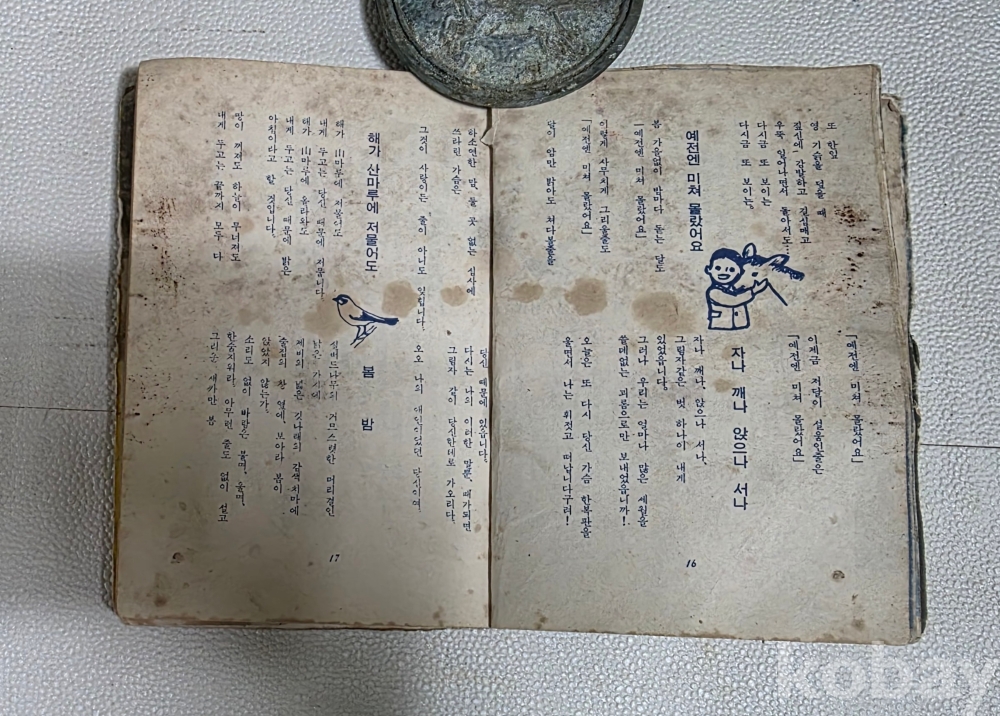 또 한잎
영 기슭을 덮을 때
짚신에 감발하고 길심매고
우뚝 일어나면서 돌아서도…
다시금 또 보이는
다시금 또 보이는.
예전엔 미쳐 몰랐어요
봄 가을없이 밤마다 돋는 달도
「예전엔 미쳐 몰랐어요」
이렇게 사무치게 그리울줄도
「예전엔 미쳐 몰랐어요」
달이 암만 밝아도 쳐다볼줄을
「예전엔 미쳐 몰랐어요」
이제금 저달이 설움인줄은
「예전엔 미쳐 몰랐어요」
자나 깨나 앉으나 서나
자나 깨나、앉으나 서나、
그림자같은 벗 하나이 내게
있었읍니다.
그러나 우리는 얼마나 많은 세월을
쓸데없는 괴롬으로만 보내었읍니까!
오늘은 또 다시 당신 가슴 한복판을
울면서 나는 휘젓고 떠납니다구려!
16
하소연한 맘、둘 곳 없는 심사에
쓰라린 가슴은
그것이 사랑이든 줄이 아니도 잊힙니다.
해가 산마루에 저물어도
해가 山마루에 저물어도
내게 두고는 당신 때문에 저뭅니다.
해가 山마루에 올라와도
내게 두고는 당신 때문에 밝은
아침이라고 할 것입니다.
땅이 꺼져도 하늘이 무너져도
내게 두고는 끝까지 모두 다
당신 때문에 있습니다.
다시는 나의 이러한 맘뿐、때가되면
그림자 같이 당신한테로 가오리다.
오오 나의 애인이었던 당신이여.
봄 밤
실버드나무의 거므스렷한 머리결인
낡은 가지에
제비의 넓은 깃나래의 감색치마에
술집의 창 옆에、보아라 봄이
앉았지 않는가.
소리도 없이 바람은 불며、울며、
한숨지워라 아무런 줄도 없이 설고
그리운 새카만 봄
17
koBay